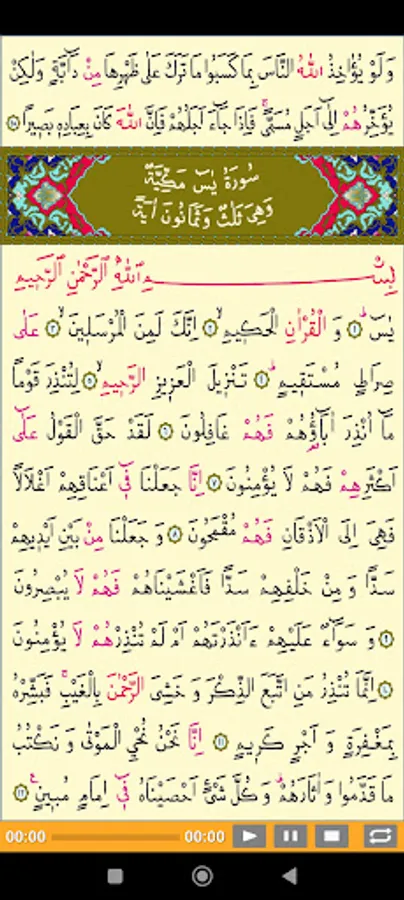 وَلَوْ يُؤَاخِذُ اللّٰهُ النَّاسَ بِمَا كَسَبُوا مَا تَرَكَ عَلٰى ظَهْرِهَا مِنْ دَٓابَّةٍ وَلٰكِنْ
يُؤَخِّرُهُمْ اِلٰٓى اَجَلٍ مُسَمًّىۚ فَاِذَا جَٓاءَ اَجَلُهُمْ فَاِنَّ اللّٰهَ كَانَ بِعِبَادِه۪ بَص۪يرًا
سُورَةُ يٰسٓ مَكِّيَّةٌ
وَهِىَ ثَلٰثٌ وَثَمَانُونَ اٰيَةً
بِسْمِ اللّٰهِ الرَّحْمٰنِ الرَّح۪يمِ
يٰسٓۜ ﴿١﴾ وَ الْقُرْاٰنِ الْحَك۪يمِۙ ﴿٢﴾ اِنَّكَ لَمِنَ الْمُرْسَل۪ينَۙ ﴿٣﴾ عَلٰى
صِرَاطٍ مُسْتَق۪يمٍۜ ﴿٤﴾ تَنْز۪يلَ الْعَز۪يزِ الرَّح۪يمِۙ ﴿٥﴾ لِتُنْذِرَ قَوْمًا
مَٓا اُنْذِرَ اٰبَٓاؤُ۬هُمْ فَهُمْ غَافِلُونَ ﴿٦﴾ لَقَدْ حَقَّ الْقَوْلُ عَلٰٓى
اَكْثَرِهِمْ فَهُمْ لَا يُؤْمِنُونَ ﴿٧﴾ اِنَّا جَعَلْنَا ف۪ٓى اَعْنَاقِهِمْ اَغْلَالًا
فَهِىَ اِلَى الْاَذْقَانِ فَهُمْ مُقْمَحُونَ ﴿٨﴾ وَ جَعَلْنَا مِنْ بَيْنِ اَيْد۪يهِمْ
سَدًّا وَ مِنْ خَلْفِهِمْ سَدًّا فَاَغْشَيْنَاهُمْ فَهُمْ لَا يُبْصِرُونَ
﴿٩﴾ وَ سَوَٓاءٌ عَلَيْهِمْ ءَاَنْذَرْتَهُمْ اَمْ لَمْ تُنْذِرْهُمْ لَا يُؤْمِنُونَ
﴿١٠﴾ اِنَّمَا تُنْذِرُ مَنِ اتَّبَعَ الذِّكْرَ وَ خَشِىَ الرَّحْمٰنَ بِالْغَيْبِۚ فَبَشِّرْهُ
بِمَغْفِرَةٍ وَ اَجْرٍ كَر۪يمٍ ﴿١١﴾ اِنَّا نَحْنُ نُحْيِ الْمَوْتٰى وَ نَكْتُبُ
مَا قَدَّمُوا وَ اٰثَارَهُمْۜ وَ كُلَّ شَىْءٍ اَحْصَيْنَاهُ ف۪ٓى اِمَامٍ مُب۪ينٍ۟ ﴿١٢﴾
00:00 00:00